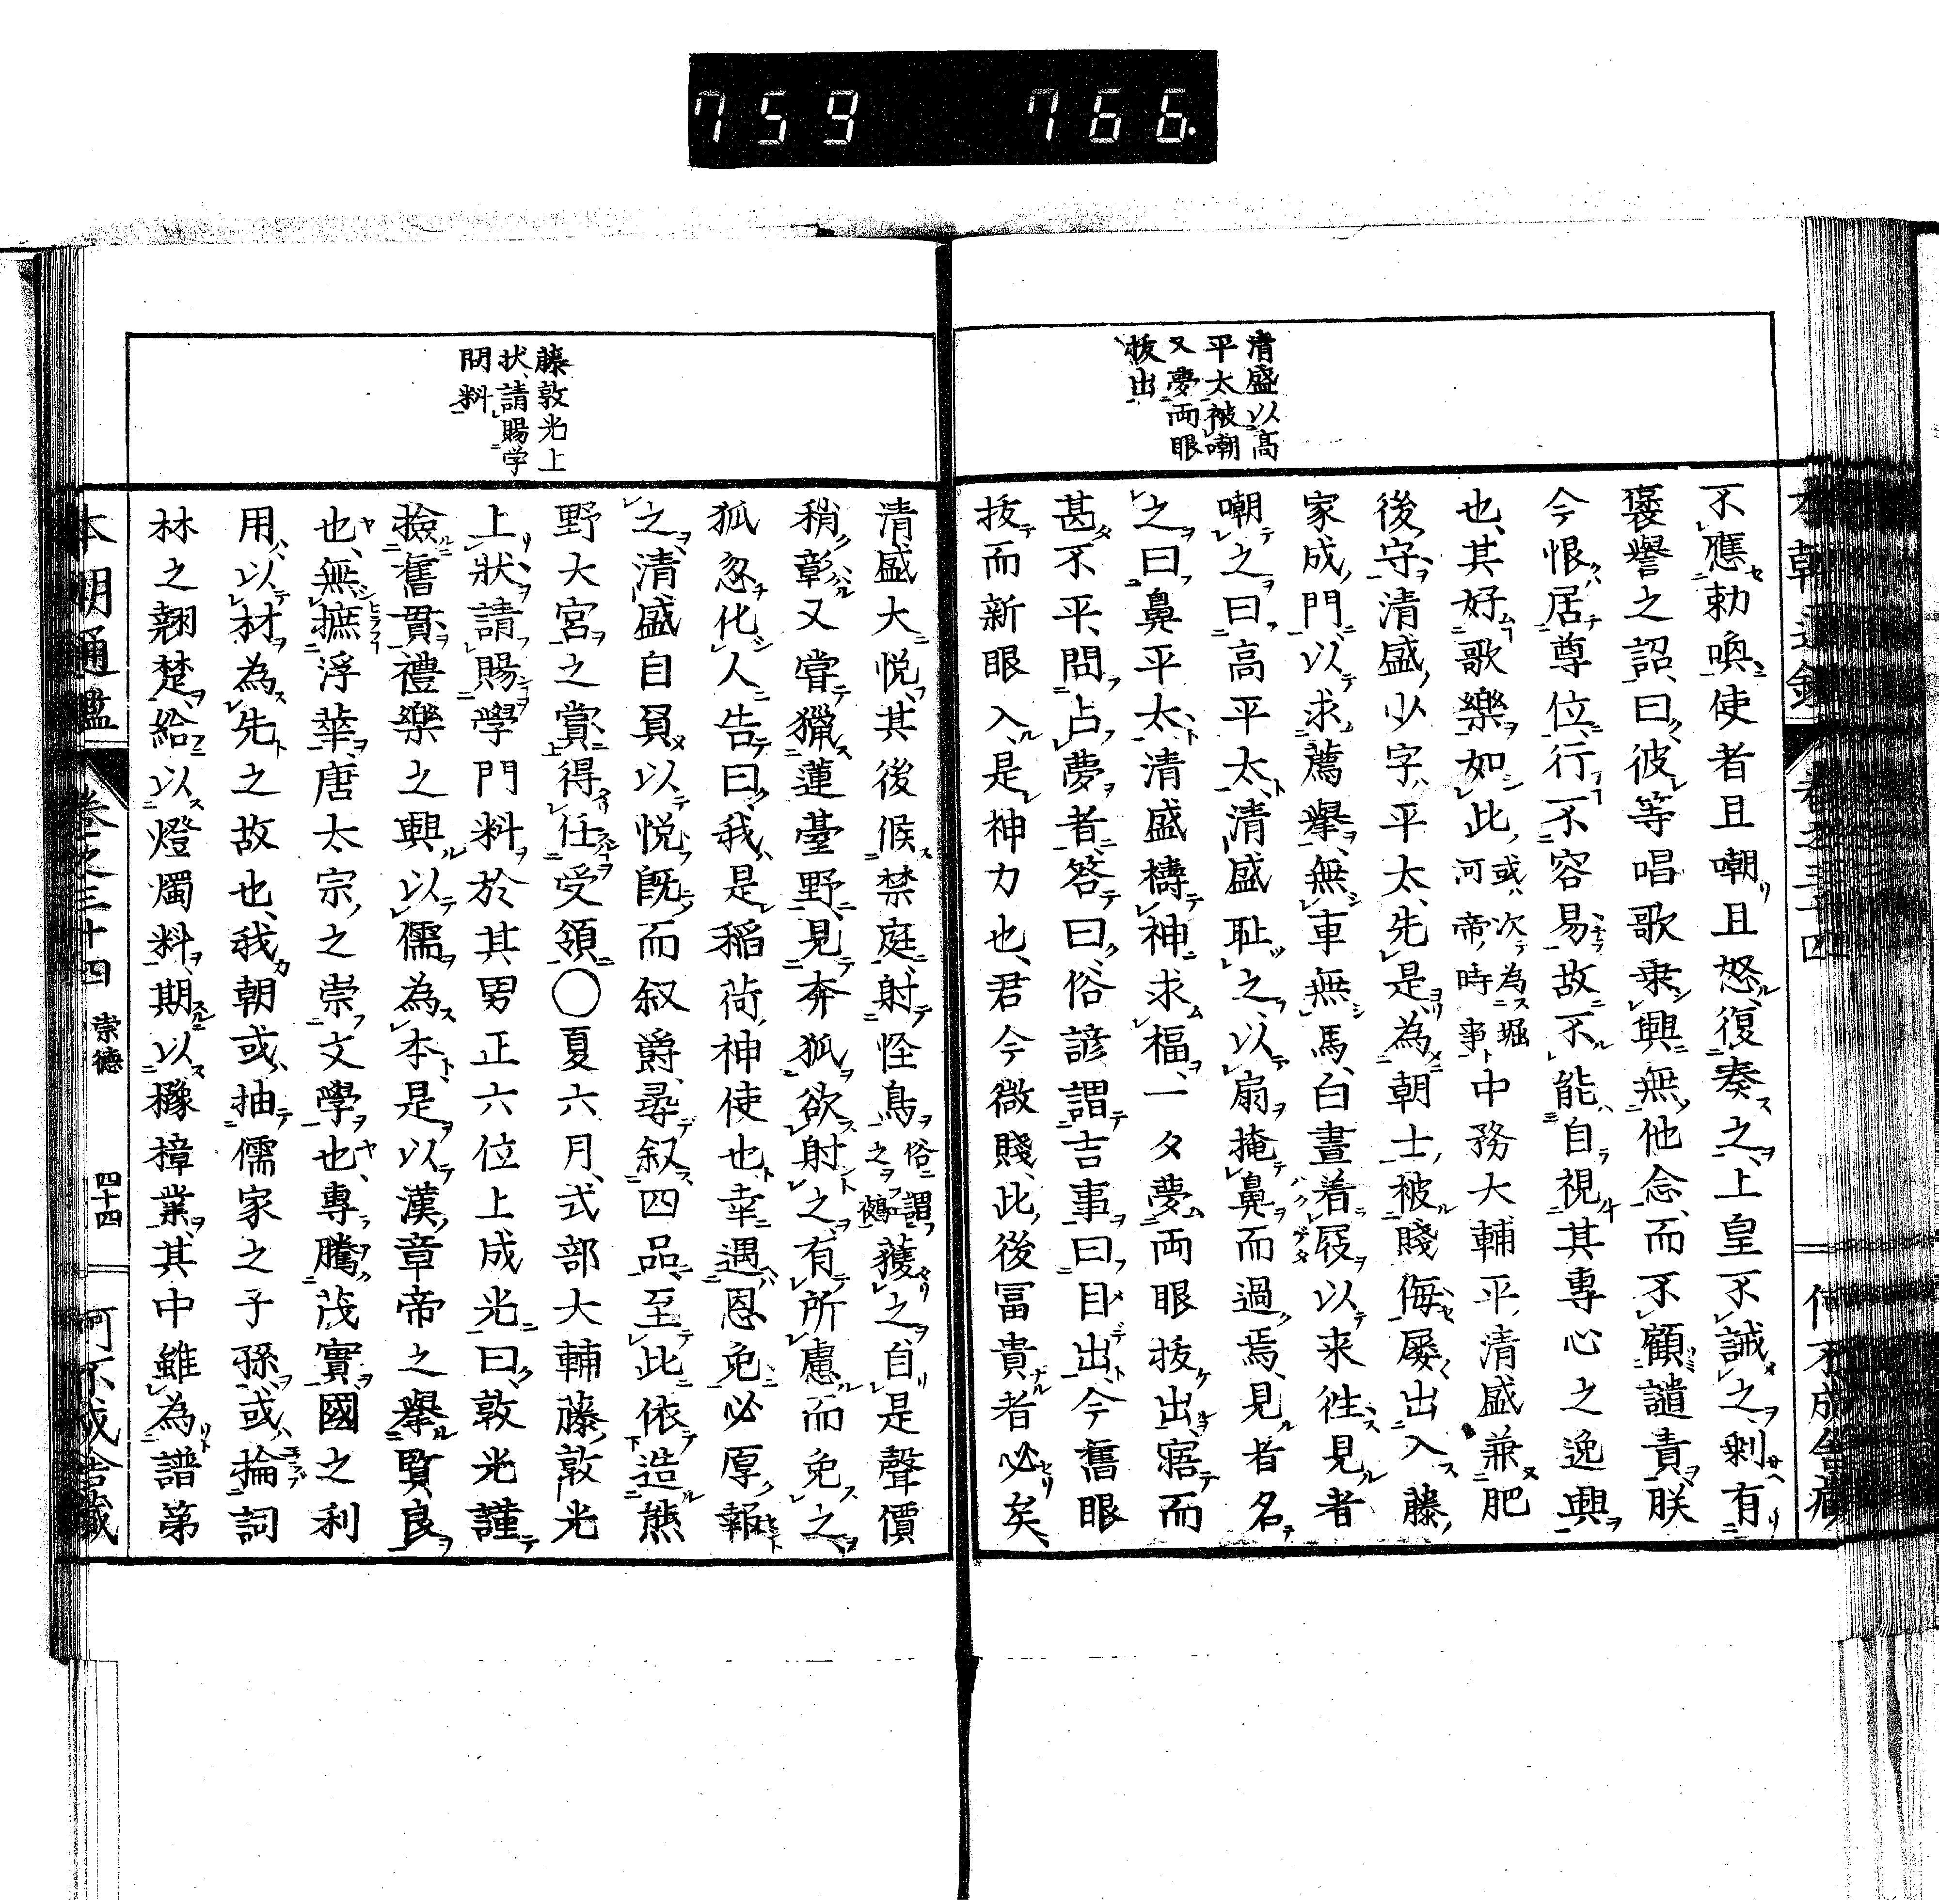 759 766.
清盛以高
平太被嘲
又夢両眼
抜出
不應勅喚使者且嘲且怒復奏之上皇不誡之剰有
褒譽之詔曰彼等唱歌乗興無他念而不顧譴責朕
今恨居尊位行不容易故不能自視其専心之逸興
也其好歌樂如此或次為堀河帝時事中務大輔平清盛兼肥
後守清盛少字平太先是為朝士被賤侮屡出入藤
家成門以求薦擧無車無馬白晝着屐以来徃見者
嘲之曰高平太清盛耻之以扇掩鼻而過焉見者名
之曰鼻平太清盛禱神求福一夕夢両眼抜出寤而
甚不平問占夢者答曰俗諺謂吉事曰目出今舊眼
抜而新眼入是神力也君今微賤此後冨貴者必矣
藤敦光上
状請賜学
問料
清盛大悦其後候禁庭射怪鳥俗謂之鵺獲之自是聲價
稍彰又嘗獵蓮臺野見奔狐欲射之有所慮而免之
狐忽化人告曰我是稲荷神使也幸遇恩免必厚報
之清盛自負以悦既而叙爵尋叙四品至此依造熊
野大宮之賞得任受領〇夏六月式部大輔藤敦光
上狀請賜學門料於其男正六位上成光曰敦光謹
撿舊貫禮樂之興以儒為本是以漢章帝之擧賢良
也無摭浮華唐太宗之崇文學也専騰茂實國之利
用以材為先之故也我朝或抽儒家之子孫或掄詞
林之翹楚給以燈燭料期以櫲樟業其中雖為譜第
本朝通鑑 卷之三十四 崇德 四十四